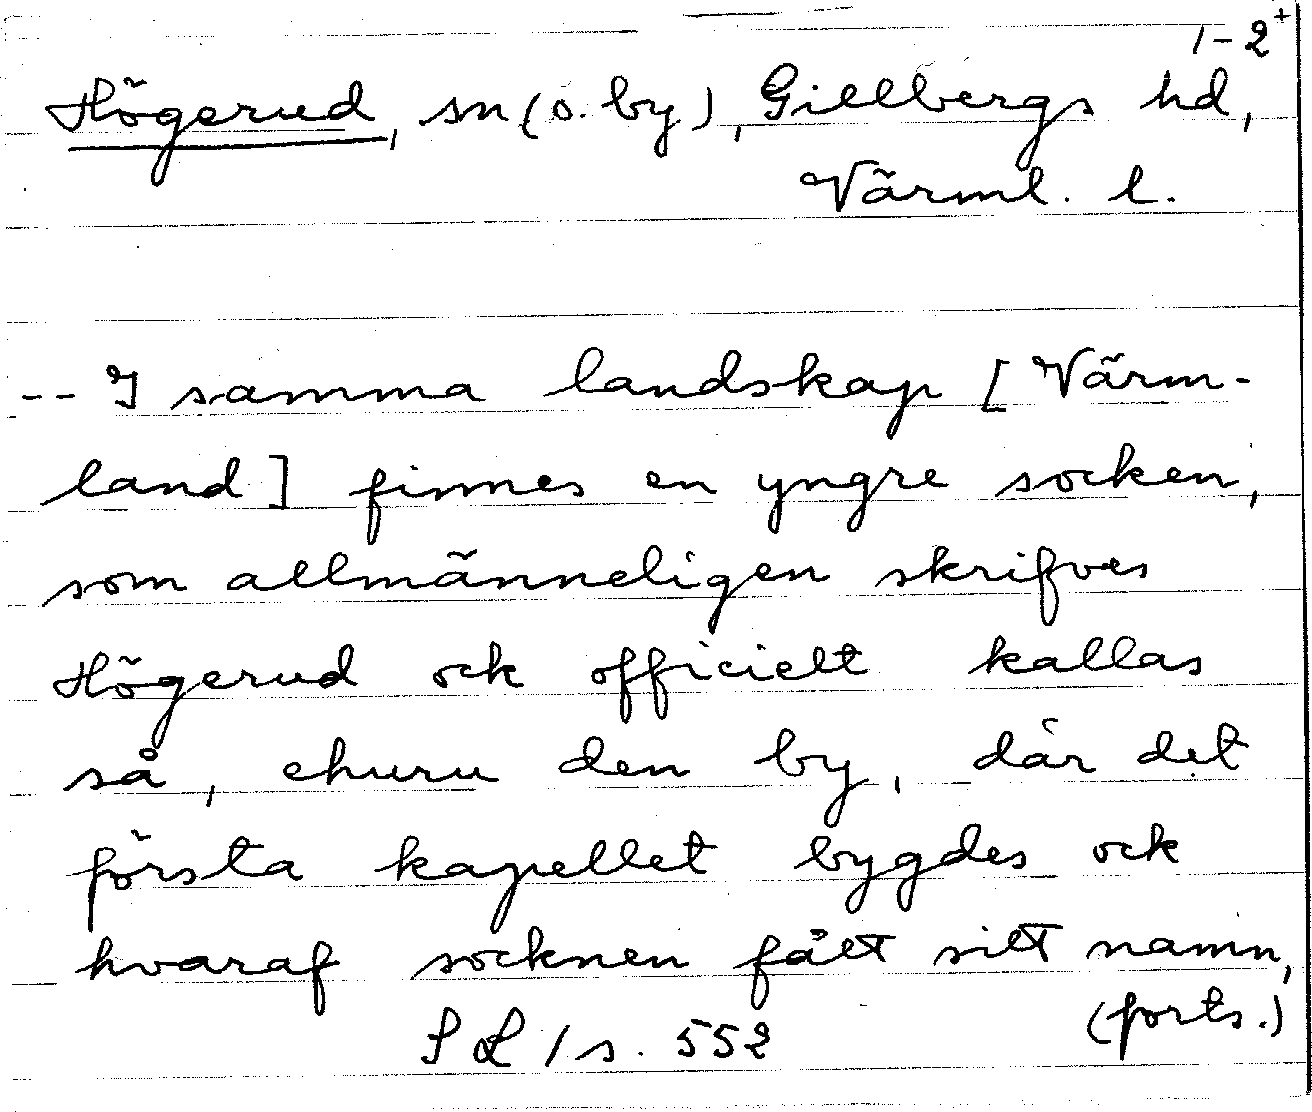 1-2+
Högerud, sn (o. by), Gillbergs hd,
Värml. l.
-- I samma landskap [Värm-
land] finnes en yngre socken,
som allmänneligen skrifves
Högerud ock officielt kallas
så, ehuru den by, där det
första kapellet bygdes ock
hvaraf socknen fått sitt namn,
(forts.)
SL 1 s. 552